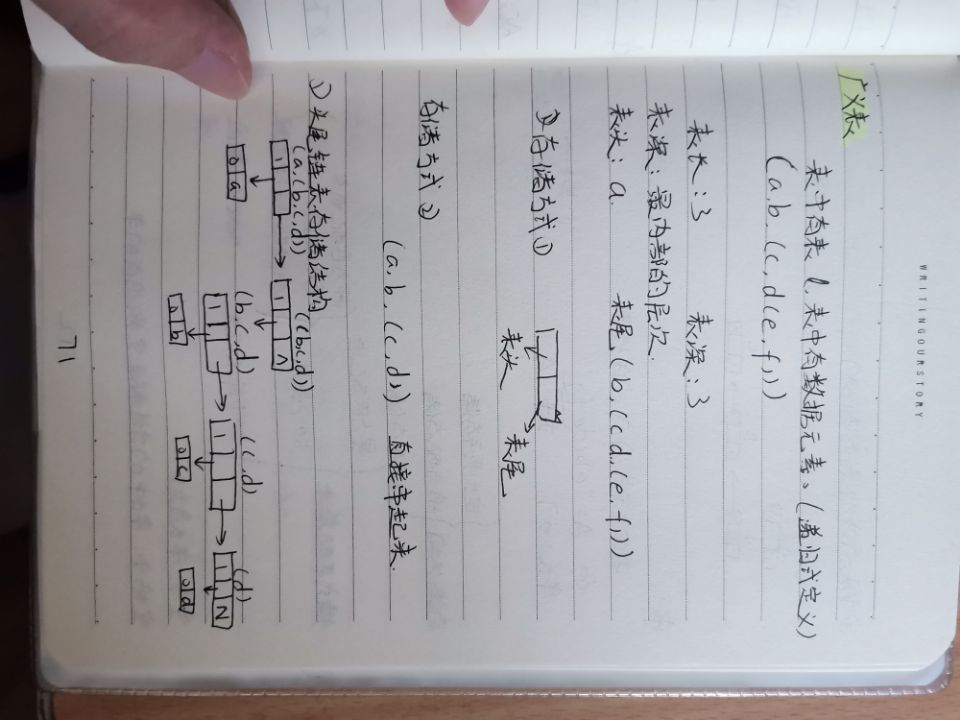 WRITINGOURSTORY
广义表
表中有表 l, 表中有数据元素。(递归式定义)
(a,b,(c,d(e,f,))
表长:3 表深:3
表深:最内部的层次.
表头:a 表尾,(b,(c d,(e,f,))
①存储方式①
表头 表尾
存储方式②
(a,b,(c,d)) 直接串起来.
① 头尾链表存储结构
(a,(b,c,d)) ((b,c,d))
1 1 Λ
0 a (b,c,d) (c,d) (d)
1 1 1 Λ
0 b 0 c 0 d
71